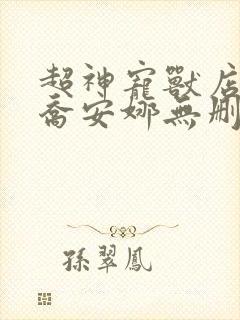 超神寵獸店
喬安娜無刪
孫翠鳳